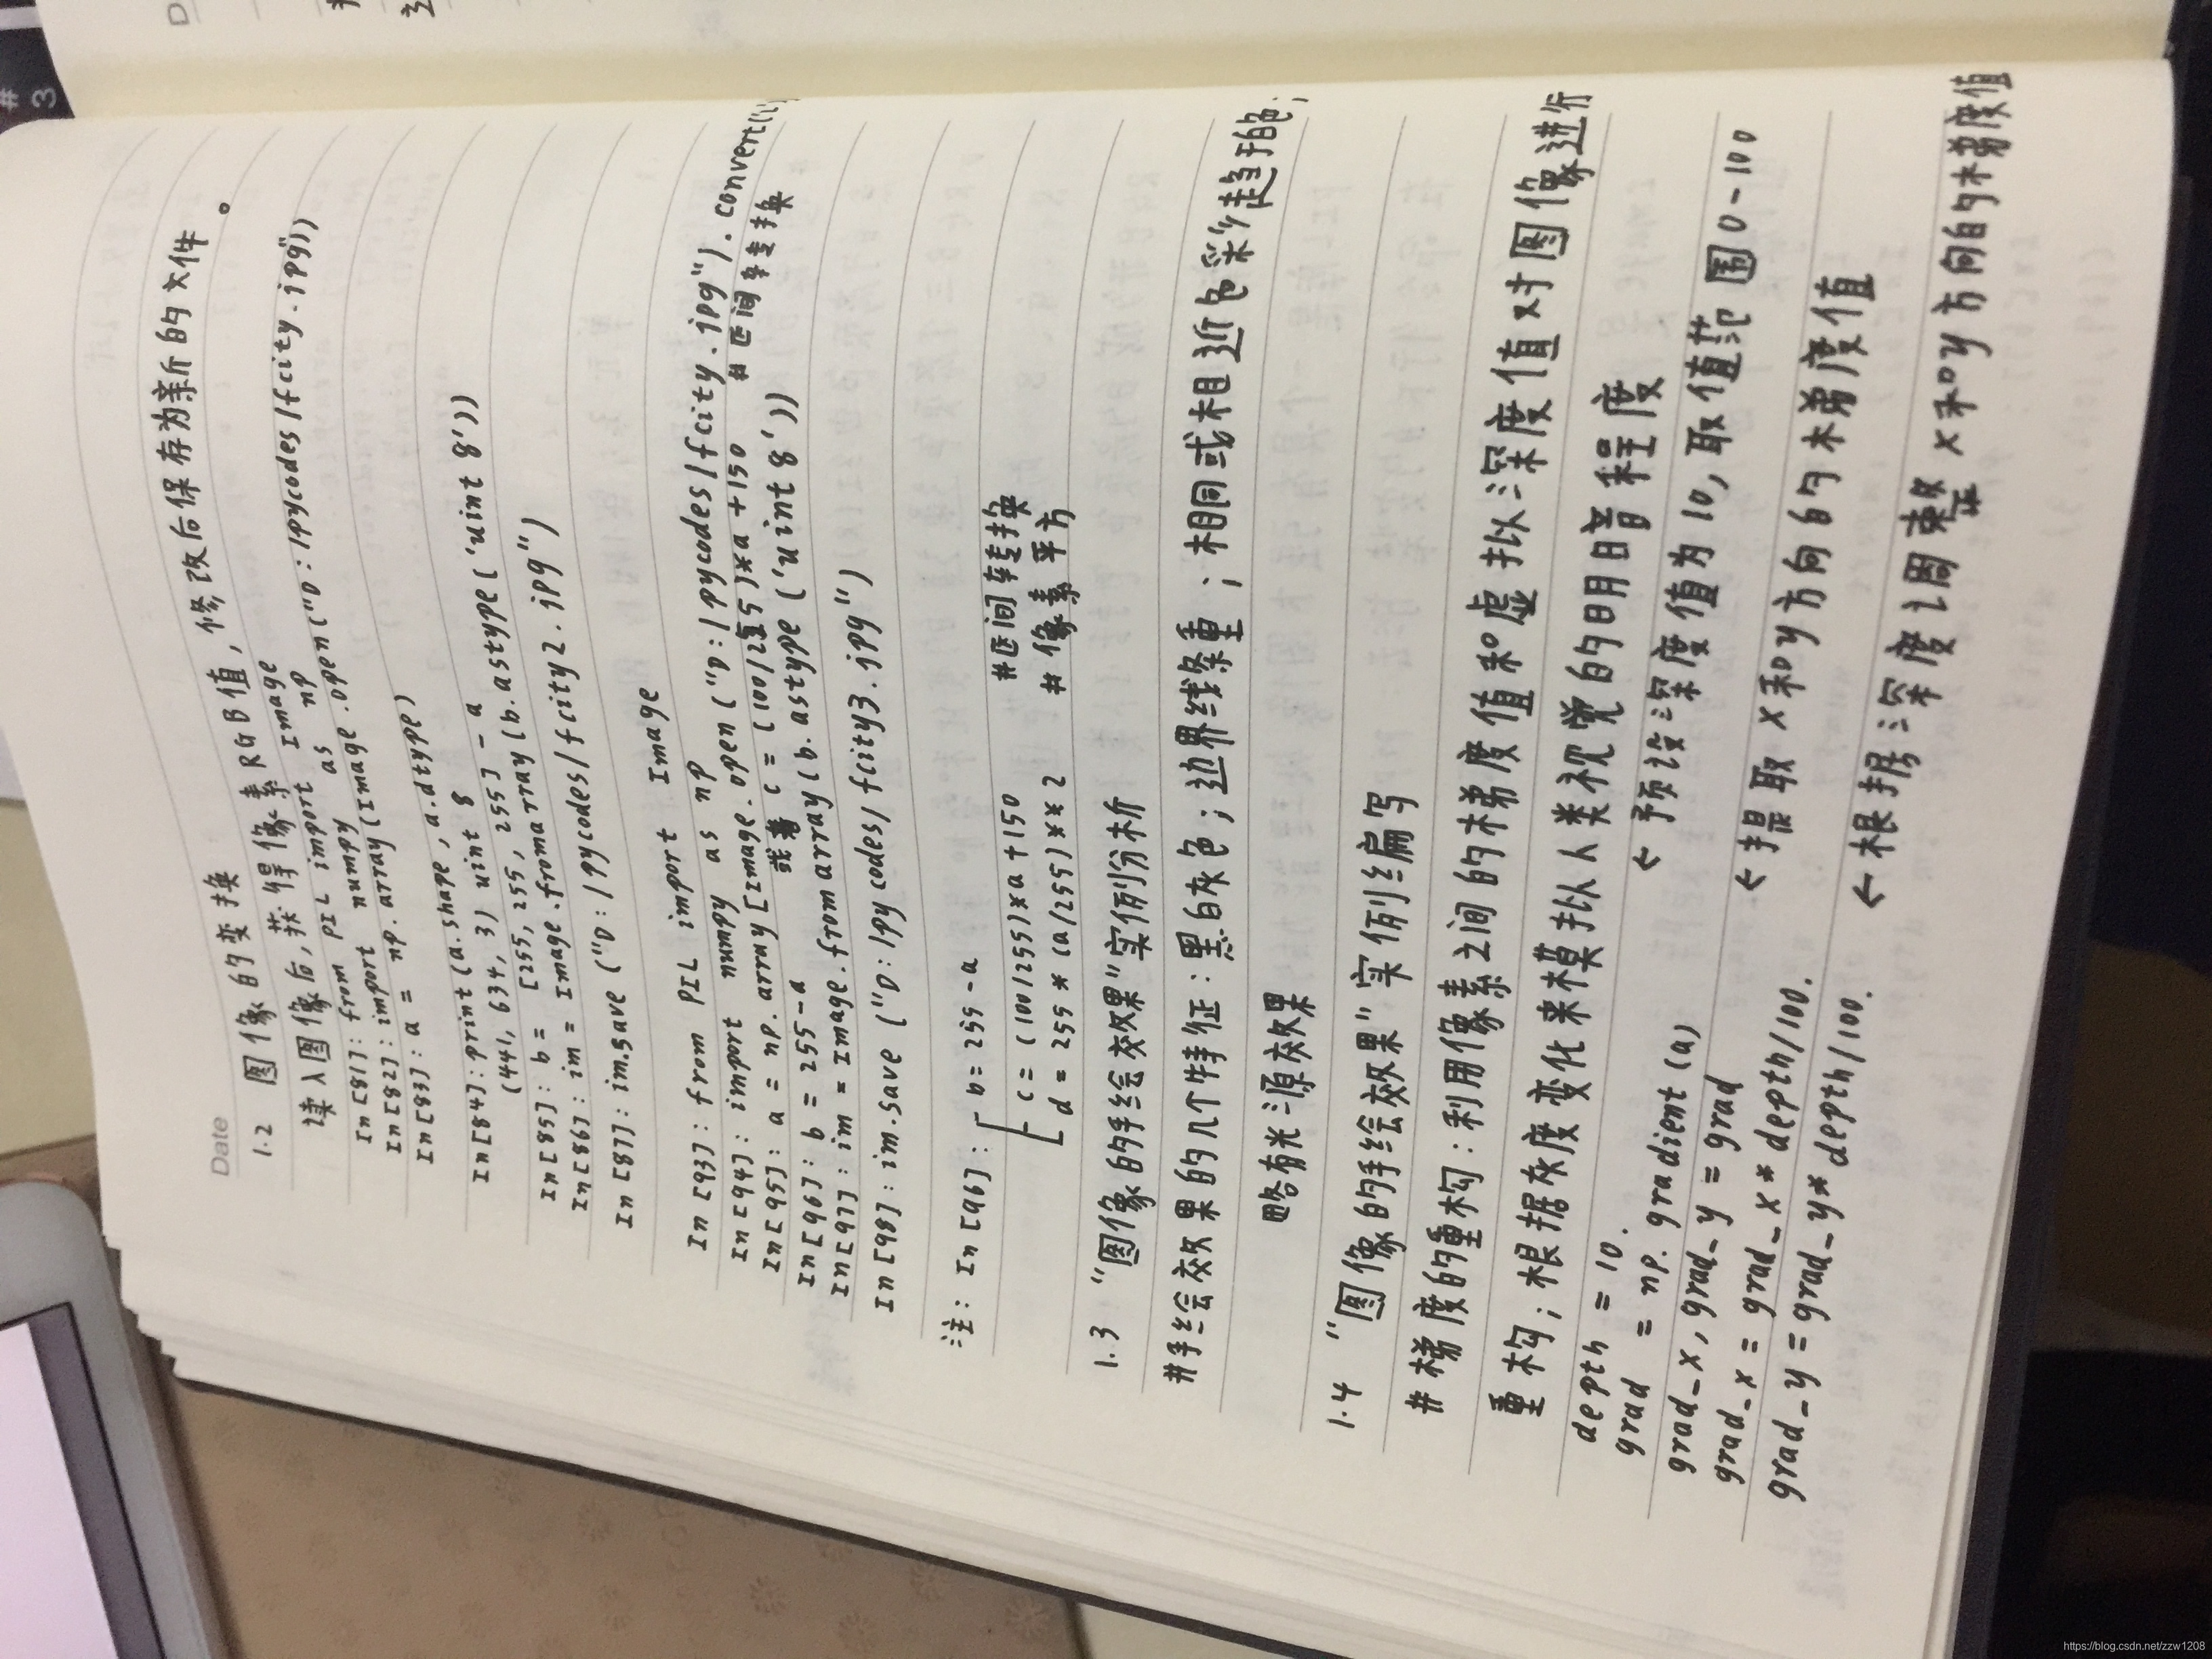 Date
1.2 图像的变换
读入图像后,获得像素RGB值,修改后保存为新的文件。
In[81]: from PIL import Image
In[82]: import numpy as np
In[83]: a = np.array(Image.open("D:/pycodes/fcity.jpg"))
In[84]: print(a.shape, a.dtype)
(441, 634, 3) uint 8
In[85]: b = [255, 255, 255] - a
In[86]: im = Image.fromarray(b.astype('uint 8'))
In[87]: im.save ("D:/pycodes/fcity2.jpg")
In[93]: from PIL import Image
In[94]: import numpy as np
In[95]: a = np.array[Image.open("D:/pycodes/fcity.jpg").convert('L'
In[96]: b = 255-a 或者 c = (100/255)*a+150 #区间转换
In[97]: im = Image.fromarray(b.astype('uint 8'))
In[98]: im.save ("D:/pycodes/fcity3.jpg")
注: In[96]: b = 255-a
c = (100/255)*a+150 #区间转换
d = 255*(a/255)**2 #像素平方
1.3 "图像的手绘效果"实例分析
#手绘效果的几个特征:黑白灰色;边界线条重;相同或相近色彩趋于白色;
略有光源效果
1.4 "图像的手绘效果"实例编写
#梯度的重构:利用像素之间的梯度值和虚拟深度值对图像进行
重构;根据灰度变化来模拟人类视觉的明暗程度
depth = 10. ←预设深度值为10,取值范围0-100
grad = np.gradient(a)
grad_x, grad_y = grad ←提取x和y方向的梯度值
grad_x = grad_x*depth/100.
grad_y = grad_y*depth/100. ←根据深度调整x和y方向的梯度值
#
3
D
https://blog.csdn.net/zzw1208